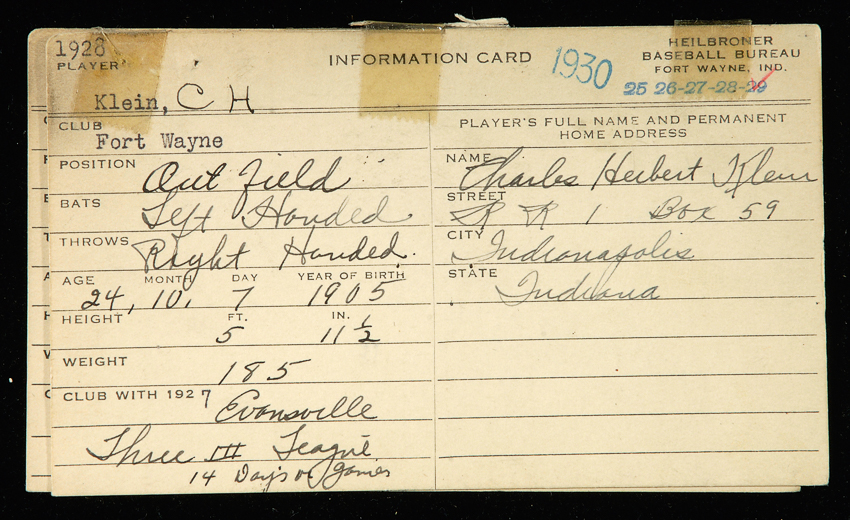 1928
PLAYER
Klein, C H
INFORMATION CARD
1930
HEILBRONER
BASEBALL BUREAU
FORT WAYNE, IND.
25 26-27-28-29
CLUB
Fort Wayne
POSITION Out Field
BATS Left Handed
THROWS Right Handed.
AGE MONTH DAY YEAR OF BIRTH
24, 10, 7 1905
HEIGHT FT. IN.
5 11 1/2
WEIGHT
185
CLUB WITH 1927
Evansville
Three III League
14 Days or games
PLAYER'S FULL NAME AND PERMANENT
HOME ADDRESS
NAME Charles Herbert Klein
STREET R R 1 Box 59
CITY Indianapolis
STATE Indiana